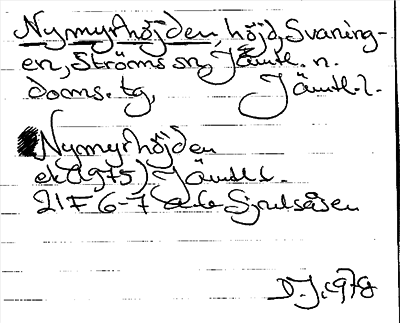 Nymyrhöjden, höjd, Svaning-
en, Ströms sn, Jämtl. n.
doms. tg, Jämtl. l.
Nymyrhöjden
ek (1975) Jämtl. l.
21F 6-7 a-b Sjoutsåsen
D.J. 1978